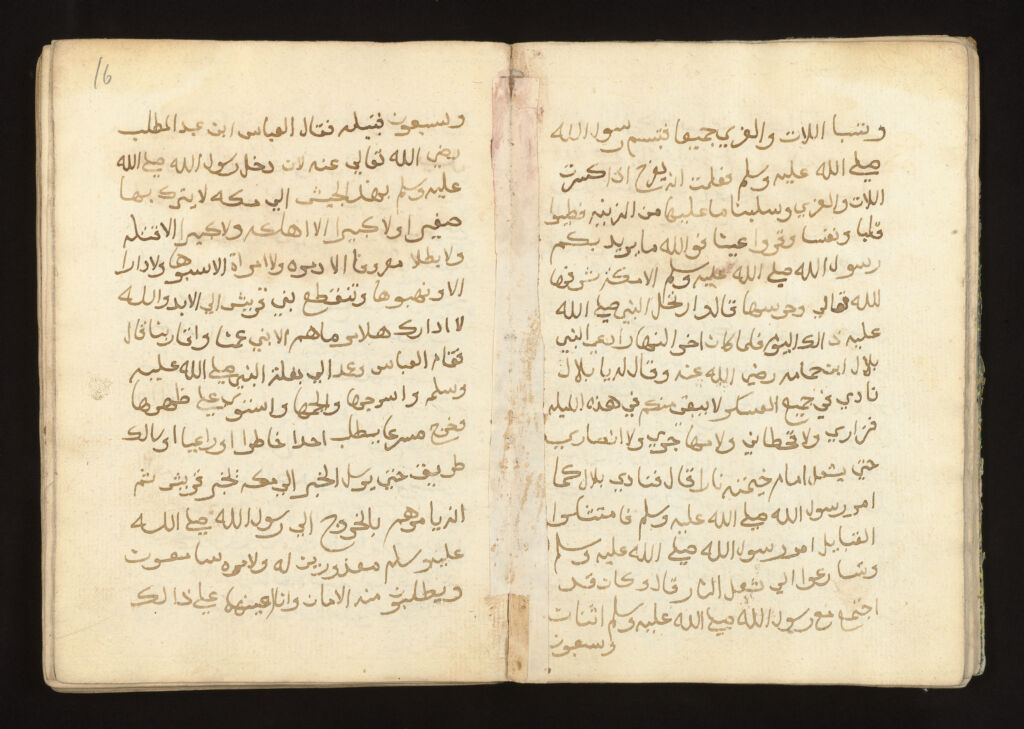 وتسبا اللات والعزي جميعا فتبسم رسول الله
صلي الله عليه وسلم فعلمت انه يفرح اذا كسرت
اللات والعزي وسلبنا ما عليها من الزينه فطيبوا
قلبا ونفسا وقروا عينا فوالله ما يريد بكم
رسول الله صلي الله عليه وسلم الا مكة شرفها
الله تعالي وحرسها قال وارتحل النبي صلي الله
عليه ذالك اليوم فلما كان اخر النهار ادعي النبي
بلال ابن حمامه رضي الله عنه وقال له يا بلال
نادي في جميع العسكر لا يبقي منكم في هذه الليله
فزاري ولا قحطاني ولا مهاجري ولا انصاري
حتي يشعل امام خيمته نارا قال فنادي بلال كما
امره رسول الله صلي الله عليه وسلم فامتثلوا
القبايل امر رسول الله صلي الله عليه وسلم
وتسارعوا الي شعل النار قال وكان قد
اجتمع مع رسول الله صلي الله عليه وسلم اثنات
وسبعون
16
وسبعون قبيله فقال العباس ابن عبد المطلب
رضي الله تعالي عنه لان دخل رسول الله صلي الله
عليه وسلم بهذا الجيش الي مكه لا يترك بها
صغيرا ولا كبيرا الا اهلكه ولا كبيرا الا قتله
ولا بطلا معروفا الا دمره ولا امراة الا سبوها ولا دارا
الا ونهبوها وتنقطع بني قريش الي الابد والله
لا ادارك هلاس ما هم الا بني عمنا واقاربنا قال
فقام العباس وعد الي بغلة النبي صلي الله عليه
وسلم واسرجها والجمها واستوي علي ظهرها
وخرج مسرعا يطلب احدا خاطرا او راعيا او سالك
طريق حتي يرسل الخبر الي مكه تخبر قريش ثم
انه يامرهم بالخروج الي رسول الله صلي الله
عليه وسلم معذورين له ولامره سامعون
ويطلبون منه الامان وانا اعينها علي ذالك